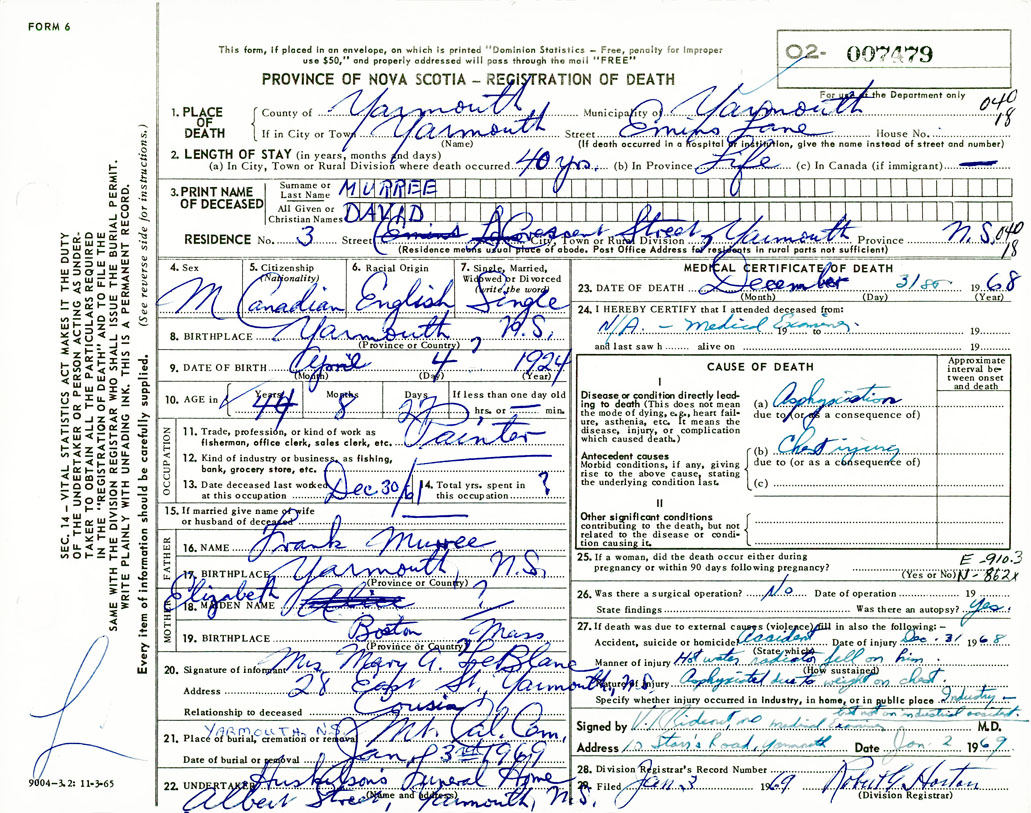 FORM 6
This form, if placed in an envelope, on which is printed "Dominion Statistics – Free, penalty for improper
use $50," and properly addressed will pass through the mail "FREE"
PROVINCE OF NOVA SCOTIA – REGISTRATION OF DEATH
02- 007479
For use of the Department only
040
18
1. PLACE OF DEATH
County of Yarmouth Municipality of Yarmouth
If in City or Town Yarmouth Street Emins Lane House No.
(Name) (If death occurred in a hospital or institution, give the name instead of street and number)
2. LENGTH OF STAY (in years, months and days)
(a) In City, Town or Rural Division where death occurred 40 yrs. (b) In Province Life (c) In Canada (if immigrant) —
3. PRINT NAME OF DECEASED
Surname or Last Name MURREE
All Given or Christian Names DAVID
RESIDENCE No. 3 Street Crescent Street, Yarmouth City, Town or Rural Division Province N.S. 040
18
(Residence means usual place of abode. Post Office Address for residents in rural parts not sufficient)
4. Sex M
5. Citizenship (Nationality) Canadian
6. Racial Origin English
7. Single, Married, Widowed or Divorced (write the word) Single
8. BIRTHPLACE Yarmouth, N.S.
(Province or Country)
9. DATE OF BIRTH April 4 1924
(Month) (Day) (Year)
10. AGE in Years 44 Months 8 Days 27 If less than one day old
hrs. or — min.
OCCUPATION
11. Trade, profession, or kind of work as
fisherman, office clerk, sales clerk, etc. Painter
12. Kind of industry or business, as fishing,
bank, grocery store, etc.
13. Date deceased last worked
at this occupation Dec 30/61
14. Total yrs. spent in
this occupation ?
15. If married give name of wife
or husband of deceased
FATHER
16. NAME Frank Murree
17. BIRTHPLACE Yarmouth, N.S.
(Province or Country)
MOTHER
Elizabeth
18. MAIDEN NAME Alice ?
19. BIRTHPLACE Boston Mass
(Province or Country)
20. Signature of informant Mrs Mary A. LeBlanc
Address 28 East St, Yarmouth, N.S.
Relationship to deceased Cousin
YARMOUTH, N.S.
21. Place of burial, cremation or removal Mt. Cal. Cem.
Date of burial or removal Jan. 3rd 1969
22. UNDERTAKER Huskilson's Funeral Home
(Name and address)
Albert Street, Yarmouth, N.S.
MEDICAL CERTIFICATE OF DEATH
23. DATE OF DEATH December 31st 1968
(Month) (Day) (Year)
24. I HEREBY CERTIFY that I attended deceased from:
N/A. – Medical Examiner. to 19
and last saw h alive on 19
CAUSE OF DEATH
Approximate interval between onset and death
I
Disease or condition directly leading to death (This does not mean
the mode of dying, e.g., heart failure, asthenia, etc. It means the
disease, injury, or complication
which caused death.)
(a) Asphyxiation
due to (or as a consequence of)
Antecedent causes
Morbid conditions, if any, giving
rise to the above cause, stating
the underlying condition last.
(b) Chest injury
due to (or as a consequence of)
(c)
II
Other significant conditions
contributing to the death, but not
related to the disease or condition causing it.
25. If a woman, did the death occur either during
pregnancy or within 90 days following pregnancy?
(Yes or No)
E-910.3
N-862x
26. Was there a surgical operation? No Date of operation 19
State findings Was there an autopsy? Yes.
27. If death was due to external causes (violence) fill in also the following:–
Accident, suicide or homicide Accident Date of injury Dec. 31 1968
(State which)
Manner of injury Hot water radiator fell on him.
(How sustained)
Nature of injury Asphyxiated due to weight on chest.
Specify whether injury occurred in Industry, in home, or in public place Industry –
but not an industrial accident.
Signed by V. Rideout MD medical Examiner M.D.
Address Starr's Road, Yarmouth Date Jan. 2 1969
28. Division Registrar's Record Number
29. Filed Jan. 3 1969 Robert G. Horton
(Division Registrar)
SEC. 14 – VITAL STATISTICS ACT MAKES IT THE DUTY
OF THE UNDERTAKER OR PERSON ACTING AS UNDERTAKER TO OBTAIN ALL THE PARTICULARS REQUIRED
IN THE "REGISTRATION OF DEATH" AND TO FILE THE
SAME WITH THE DIVISION REGISTRAR WHO SHALL ISSUE THE BURIAL PERMIT.
WRITE PLAINLY WITH UNFADING INK. THIS IS A PERMANENT RECORD.
Every item of information should be carefully supplied. (See reverse side for instructions.)
9004-3.2: 11-3-65